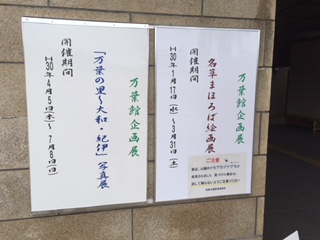 万葉館企画展
名草まほろば絵画展
開催期間
H30年1月17日(水)～3月31日(土)
ご注意
万葉館企画展
「万葉の里～大和・紀伊」写真展
開催期間
H30年4月5日(木)～7月8日(日)